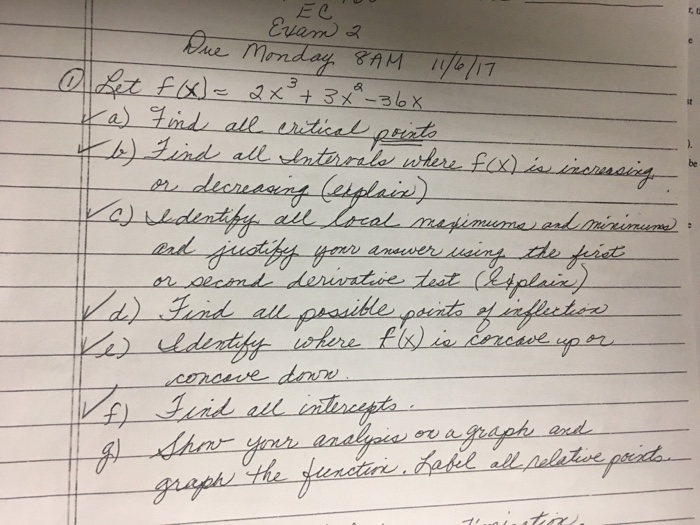 EC
Exam 2
Due Monday 8AM 11/6/17
① Let f(x) = 2x³ + 3x² - 36x
✓ a) Find all critical points
✓ b) Find all Intervals where f(x) is increasing
or decreasing (explain)
✓ c) Identify all local maximums and minimums
and justify your answer using the first
or second derivative test (Explain)
✓ d) Find all possible points of inflection
✓ e) Identify where f(x) is concave up or
concave down.
✓ f) Find all intercepts.
g) Show your analysis on a graph and
graph the function. Label all relative points.